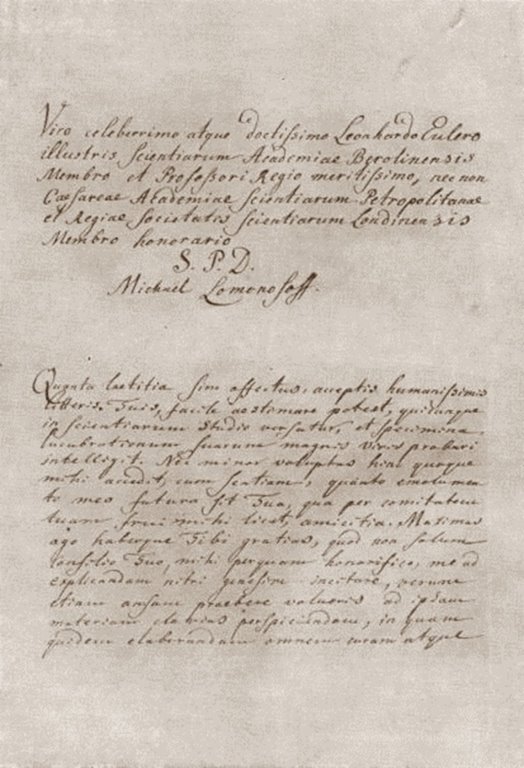 Viro celeberrimo atque doctissimo Leonhardo Eulero
illustris Scientiarum Academiae Berolinensis
Membro et Professori Regio meritissimo, nec non
Caesareae Academiae Scientiarum Petropolitanae
et Regiae Societatis Scientiarum Londinensis
Membro honorario
S. P. D.
Michael Lomonosoff.
Quanta laetitia sim affectus, acceptis humanissimis
litteris Tuis, facile aestimare potest, quicunque
in scientiarum studio versatur, et specimina
lucubrationum suarum magnis viris probari
intelligit. Nec minor voluptas hinc quoque
mihi accedit, cum sentiam, quanto emolumen
to meo futura sit Tua, qua per comitatem
tuam frui mihi licet, amicitia. Maximas
ago habeoque Tibi gratias, quod non solum
consilio Tuo, mihi perquam honorifico, me ad
explicandam nitri genesim incitare, verum
etiam ansam praebere volueris ad ipsam
materiam clarius perspiciendam, in quam
quidem elaborandam omnem curam atque